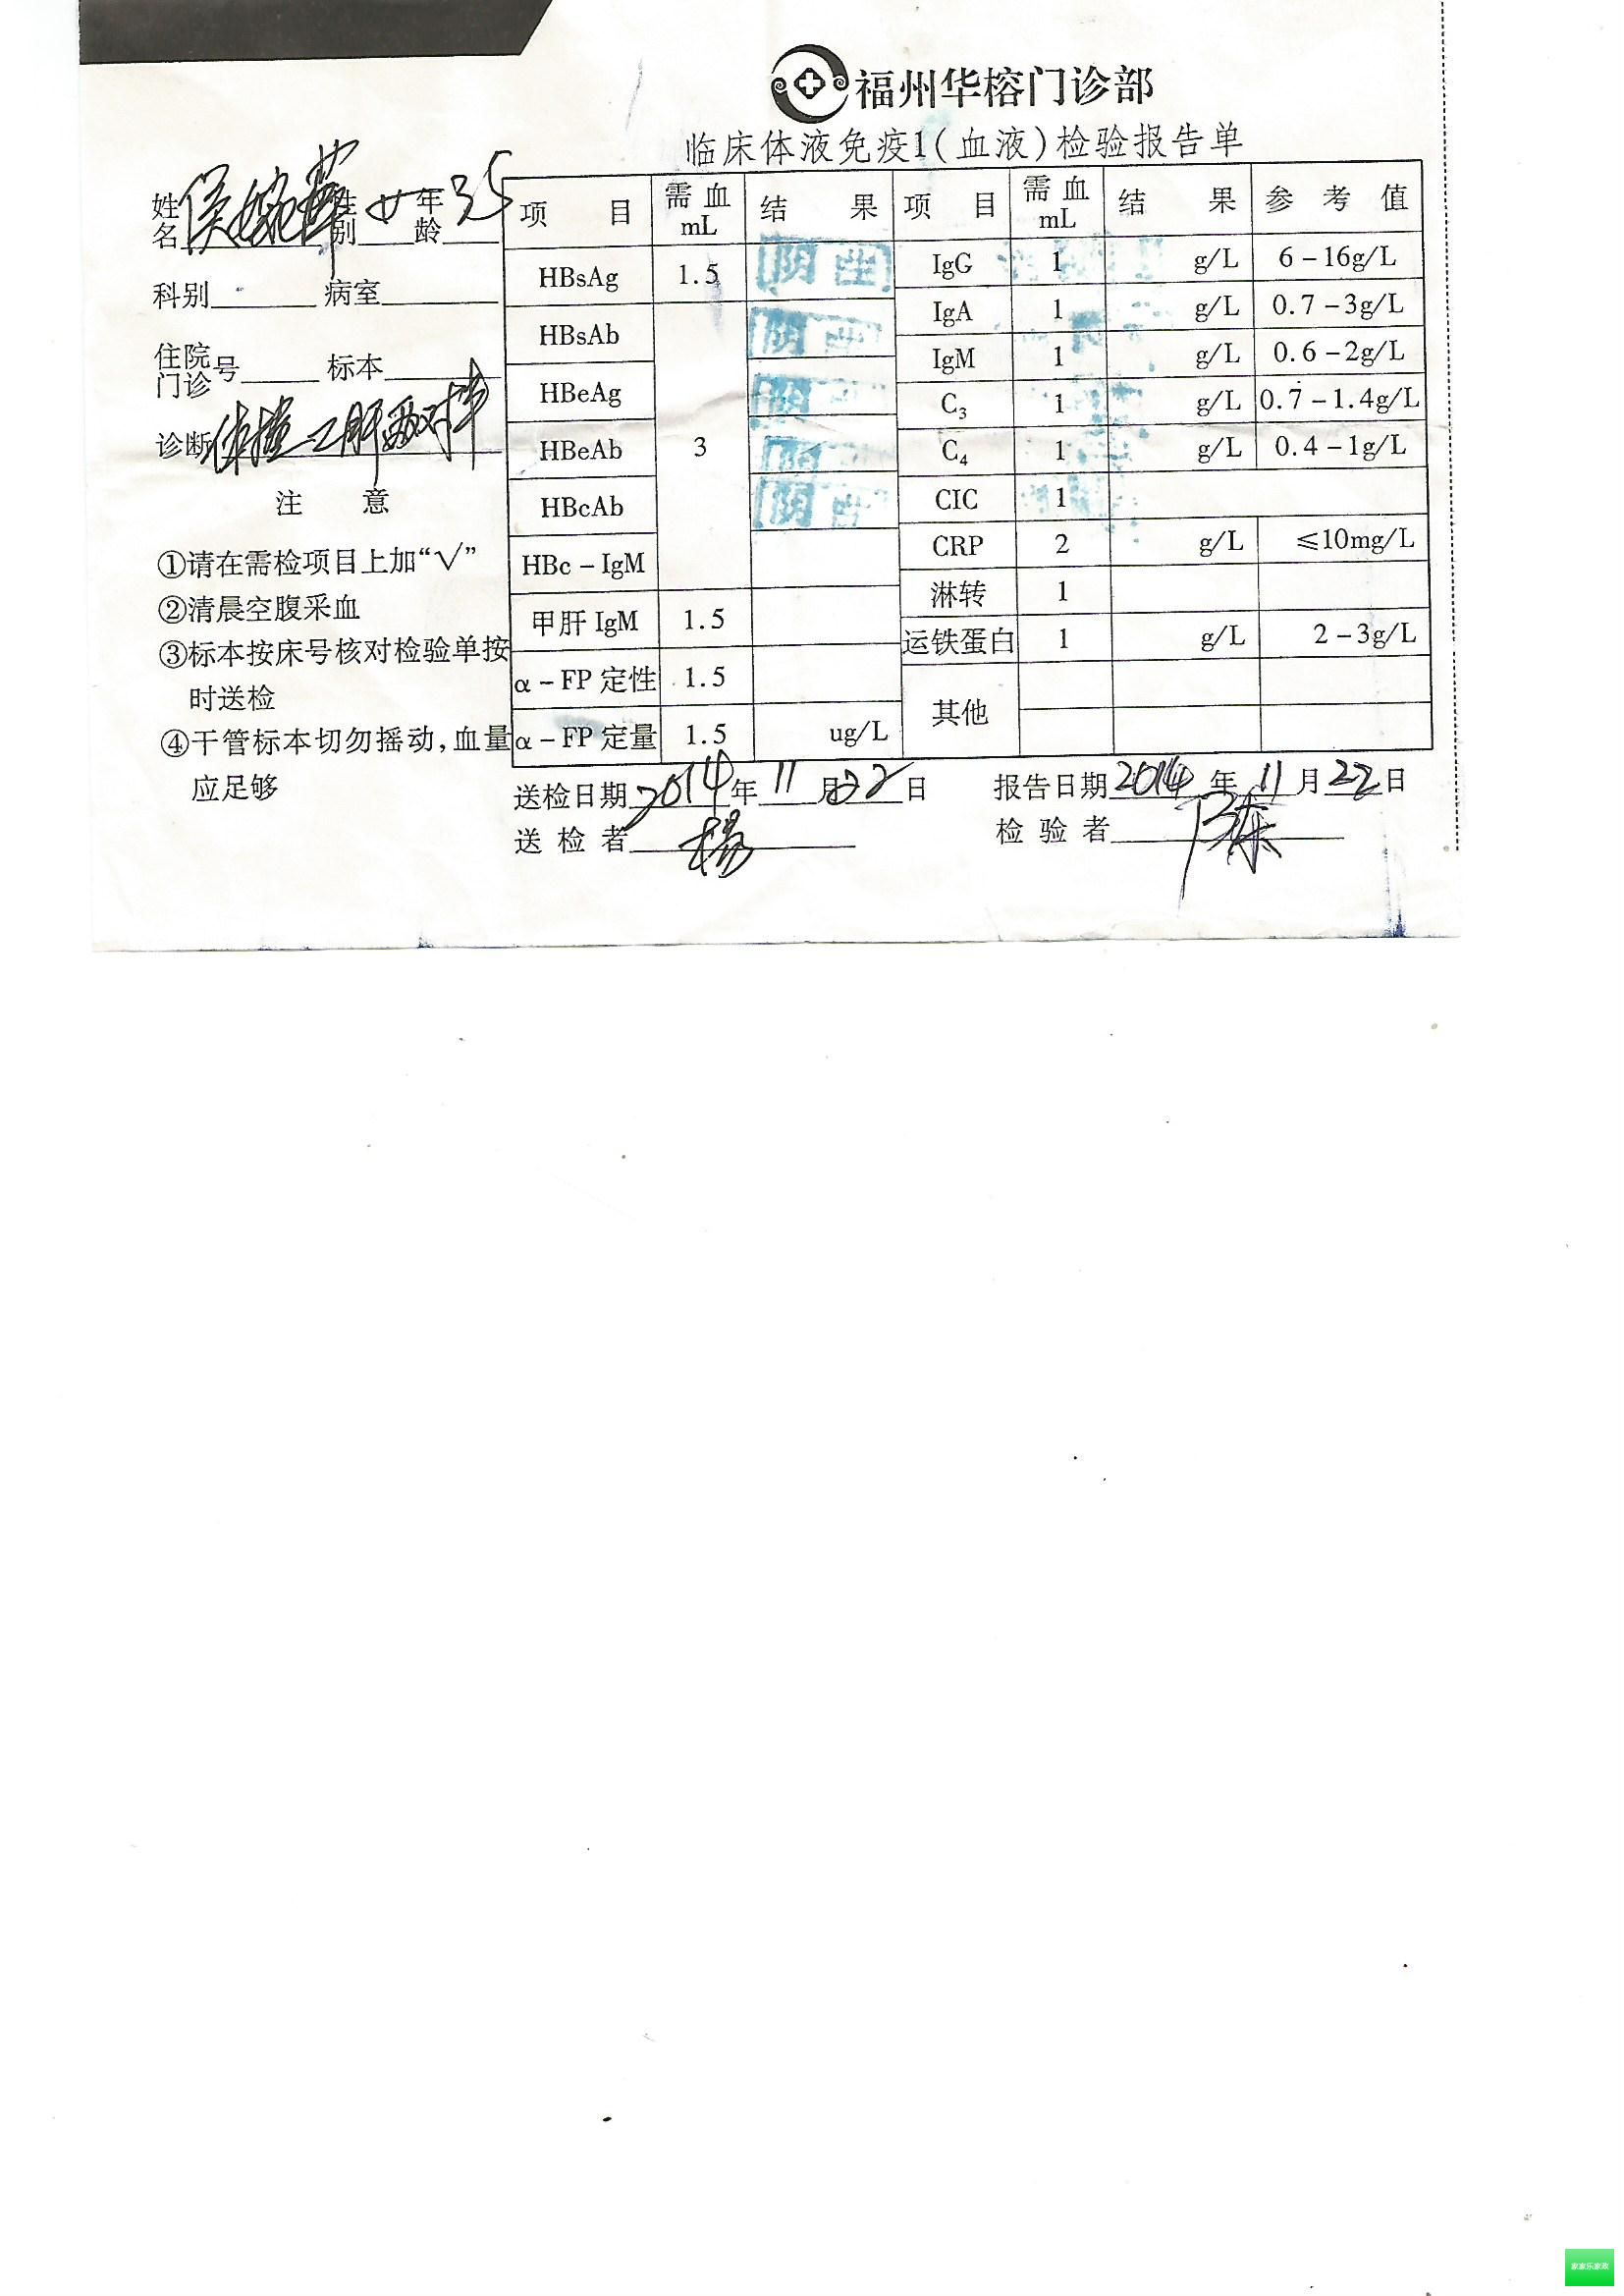 福州华榕门诊部
临床体液免疫1(血液)检验报告单
姓名 侯婉华 性别 女 年龄 35
科别 病室
住院门诊号 标本
诊断 体检 乙肝两对半
注 意
①请在需检项目上加“√”
②清晨空腹采血
③标本按床号核对检验单按
时送检
④干管标本切勿摇动,血量
应足够
项 目 需血mL 结 果 项 目 需血mL 结 果 参 考 值
HBsAg 1.5 阴性 IgG 1 g/L 6-16g/L
HBsAb 阴性 IgA 1 g/L 0.7-3g/L
IgM 1 g/L 0.6-2g/L
HBeAg 阴性 C3 1 g/L 0.7-1.4g/L
HBeAb 3 阴性 C4 1 g/L 0.4-1g/L
HBcAb 阴性 CIC 1
HBc-IgM CRP 2 g/L ≤10mg/L
淋转 1
甲肝IgM 1.5 运铁蛋白 1 g/L 2-3g/L
α-FP定性 1.5
α-FP定量 1.5 ug/L 其他
送检日期 2014年11月22日 报告日期 2014年11月22日
送检者 杨 检验者
家家乐家政